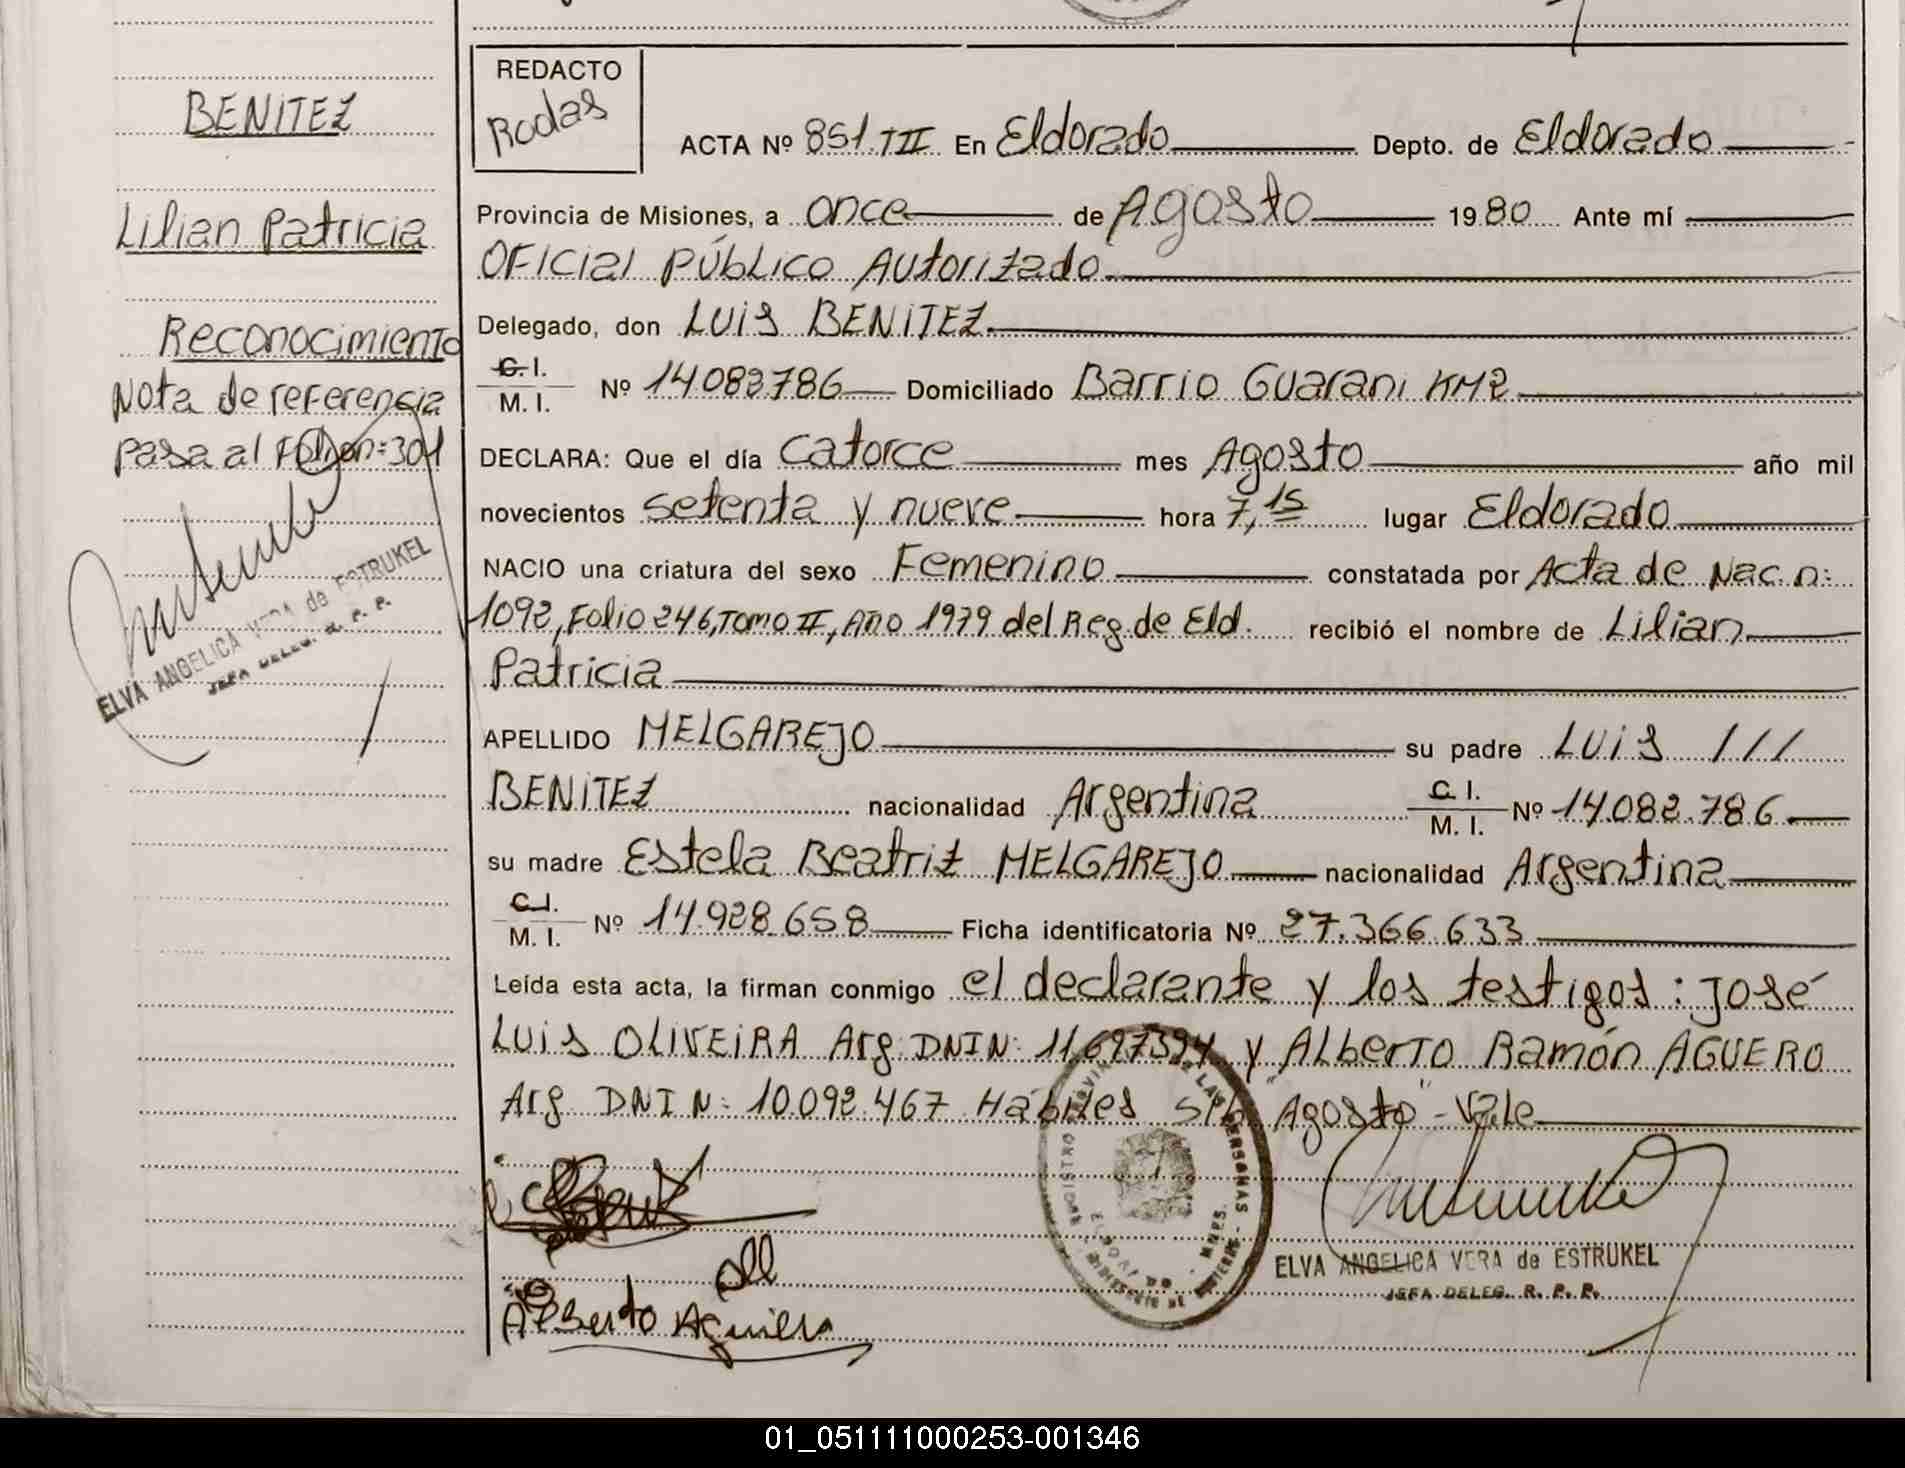 BENITEZ
Lilian Patricia
Reconocimiento
Nota de referencia
pasa al Folio n: 301
ELVA ANGELICA VERA de ESTRUKEL
JEFA DELEG. R. P. P.
REDACTO
Rodas
ACTA Nº 851. TII En Eldorado Depto. de Eldorado
Provincia de Misiones, a once de Agosto 1980 Ante mí
Oficial Público Autorizado
Delegado, don LUIS BENITEZ
C. I.
M. I. Nº 14.082.786 Domiciliado Barrio Guarani KM2
DECLARA: Que el día Catorce mes Agosto año mil
novecientos setenta y nueve hora 7,15 lugar Eldorado
NACIO una criatura del sexo Femenino constatada por Acta de Nac. n:
1092, Folio 246, Tomo II, Año 1979 del Reg. de Eld. recibió el nombre de Lilian
Patricia
APELLIDO MELGAREJO su padre LUIS ///
BENITEZ nacionalidad Argentina C. I.
M. I. Nº 14.082.786
su madre Estela Beatriz MELGAREJO nacionalidad Argentina
C. I.
M. I. Nº 14.928.658 Ficha identificatoria Nº 27.366.633
Leída esta acta, la firman conmigo el declarante y los testigos: José
LUIS OLIVEIRA Arg. DNI N: 11.697394 y Alberto Ramón AGUERO
Arg. DNI N: 10.092.467 Hábiles S/R "Agosto" - Vale
Alberto Aguero
ELVA ANGELICA VERA de ESTRUKEL
JEFA DELEG. R. P. P.
01_051111000253-001346